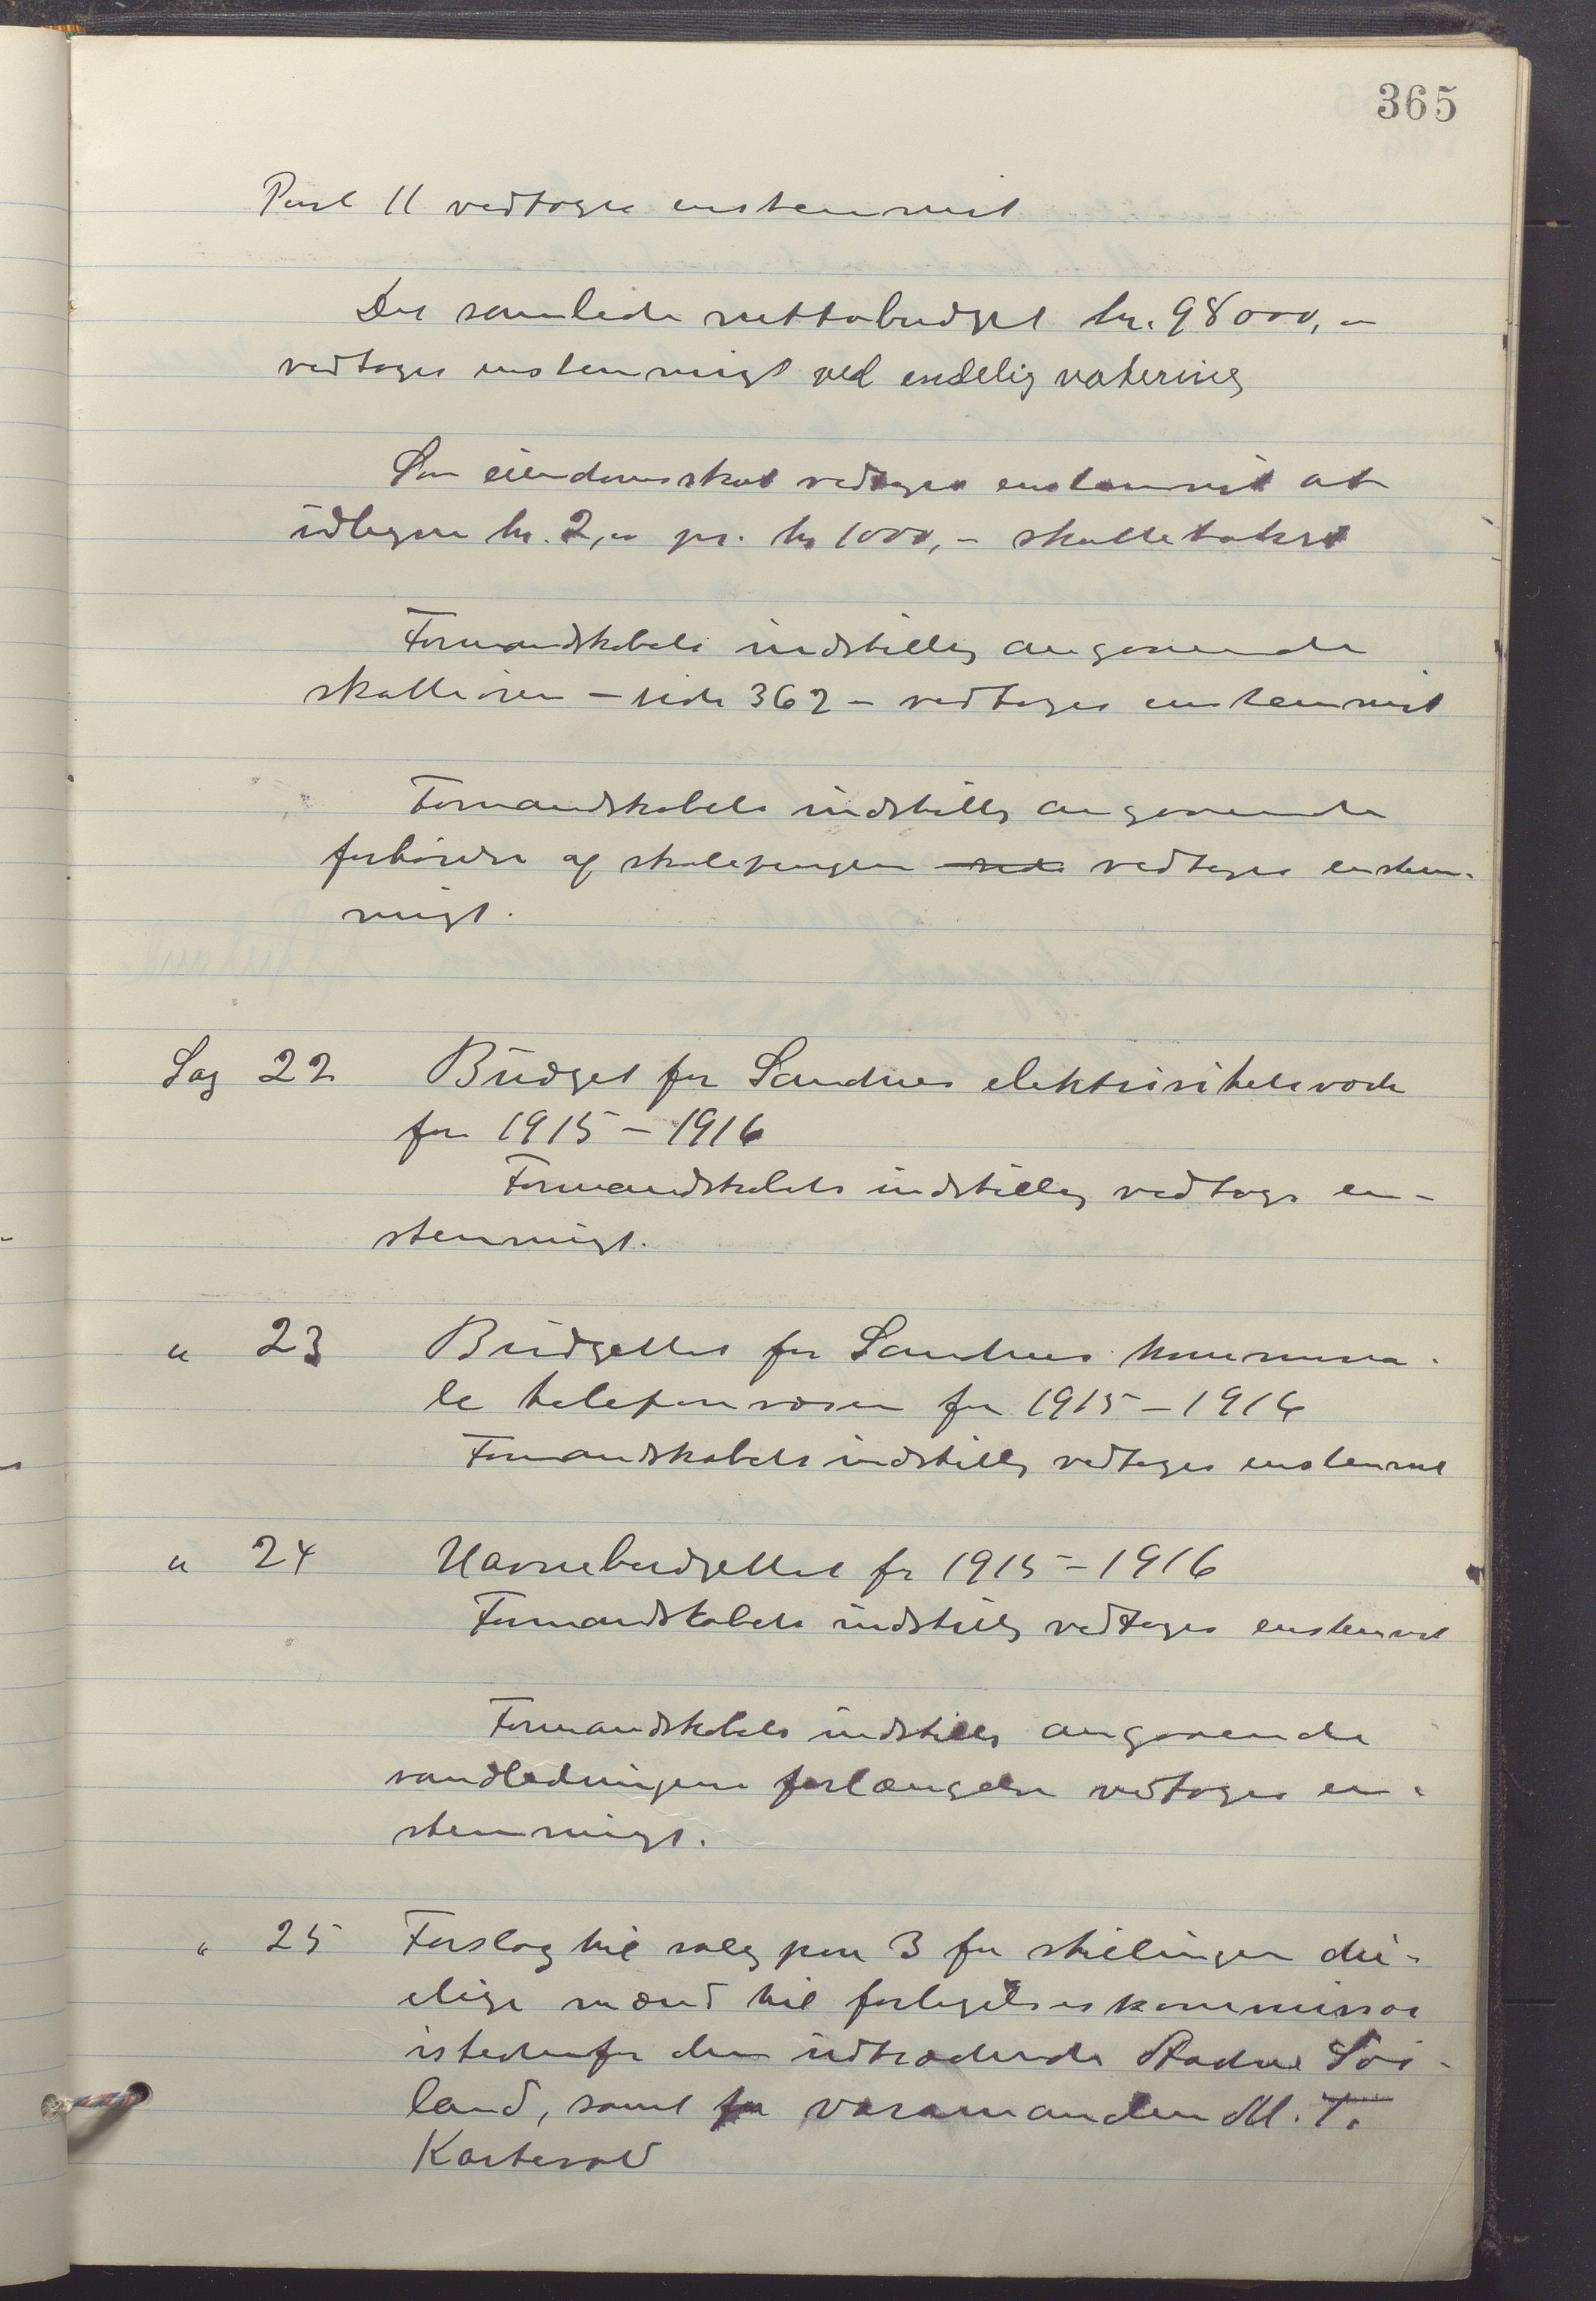 365
Post 11 vedtoges enstemmigt
Det samlede nettobudget kr. 98000,-
vedtoges enstemmigt ved endelig votering
Som eiendomsskat vedtoges enstemmigt at
udlignes kr. 2,- pr. kr 1000,- skattetakst
Formandskabets indstilling angaaende
skatteøren - side 362 - vedtoges enstemmigt
Formandskabets indstilling angaaende
forhøielse af skolepengene vedtoges enstem-
migt.
Sag 22 Budget for Sandnes elektrisitetsverk
for 1915-1916
Formandskabets indstilling vedtoges en-
stemmigt.
" 23 Budgettet for Sandnes kommuna-
le telefonvæsen for 1915-1916
Formandskabets indstilling vedtoges enstemmigt
" 24 Havnebudgettet for 1915-1916
Formandskabets indstilling vedtoges enstemmigt
Formandskabets indstilling angaaende
vandledningens forlængelse vedtoges en-
stemmigt.
" 25 Forslag til valg paa 3 for stillingen du-
elige mænd til forligelseskommissær
istedenfor den udtrædende Aadne Søi-
land, samt for varamanden M. T.
Kartevold